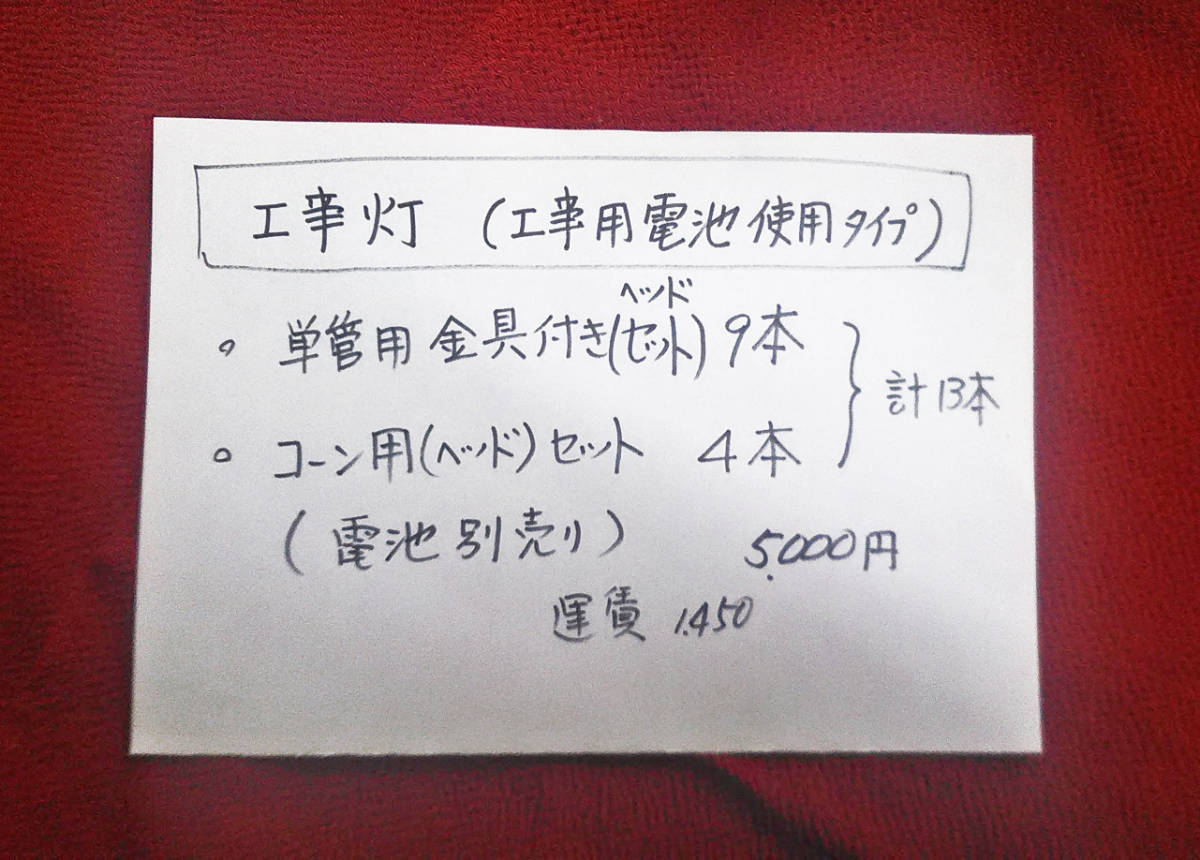 工事灯 (工事用電池使用タイプ)
ヘッド
。 単管用 金具付き(セット) 9本
計13本
。 コーン用(ヘッド)セット 4本
(電池別売り) 5.000円
運賃 1.450